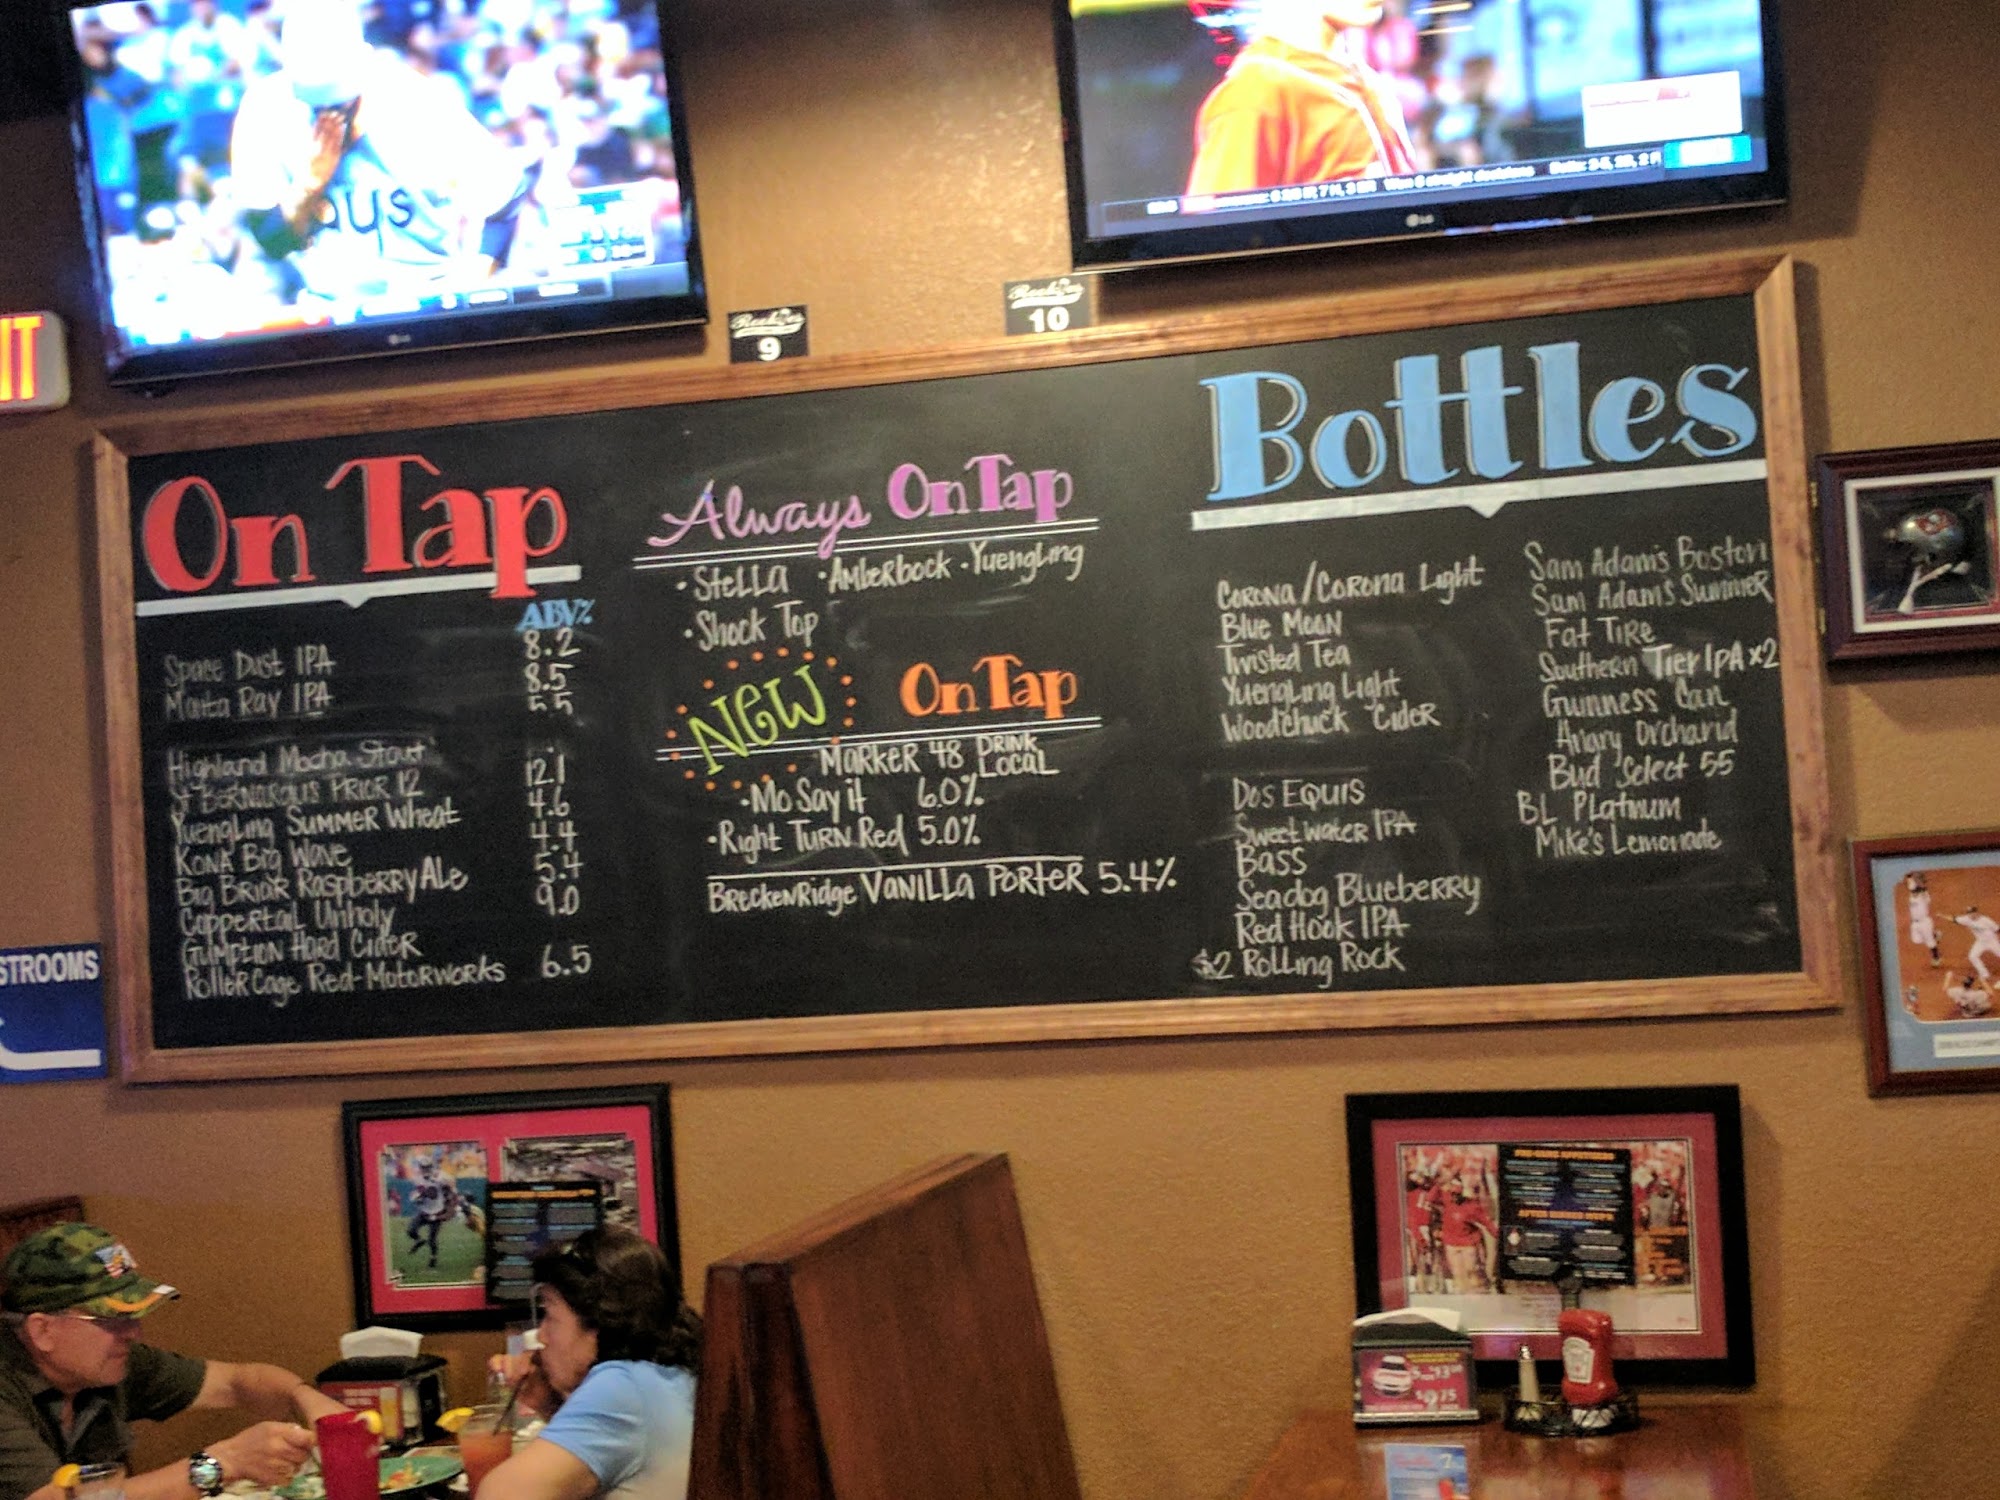 ays
Won 6 straight decisions
LG
LG
Rookies
9
Rookies
10
IT
On Tap
ABV%
Space Dust IPA 8.2
Manta Ray IPA 8.5
5.5
Highland Mocha Stout
St Bernardus Prior 12 12.1
Yuengling Summer Wheat 4.6
Kona Big Wave 4.4
Big Briar Raspberry Ale 5.4
Coppertail Unholy 9.0
Gumption Hard Cider
Roller Cage Red-Motorworks 6.5
Always On Tap
• Stella • Amberbock • Yuengling
• Shock Top
NEW On Tap
Marker 48 Drink Local
• Mo Say it 6.0%
• Right Turn Red 5.0%
Breckenridge Vanilla Porter 5.4%
Bottles
Corona/Corona Light
Blue Moon
Twisted Tea
Yuengling Light
Woodchuck Cider
Dos Equis
Sweetwater IPA
Bass
Seadog Blueberry
Red Hook IPA
$2 Rolling Rock
Sam Adam's Boston
Sam Adam's Summer
Fat Tire
Southern Tier IPA x2
Guinness Can
Angry Orchard
Bud Select 55
BL Platinum
Mike's Lemonade
STROOMS